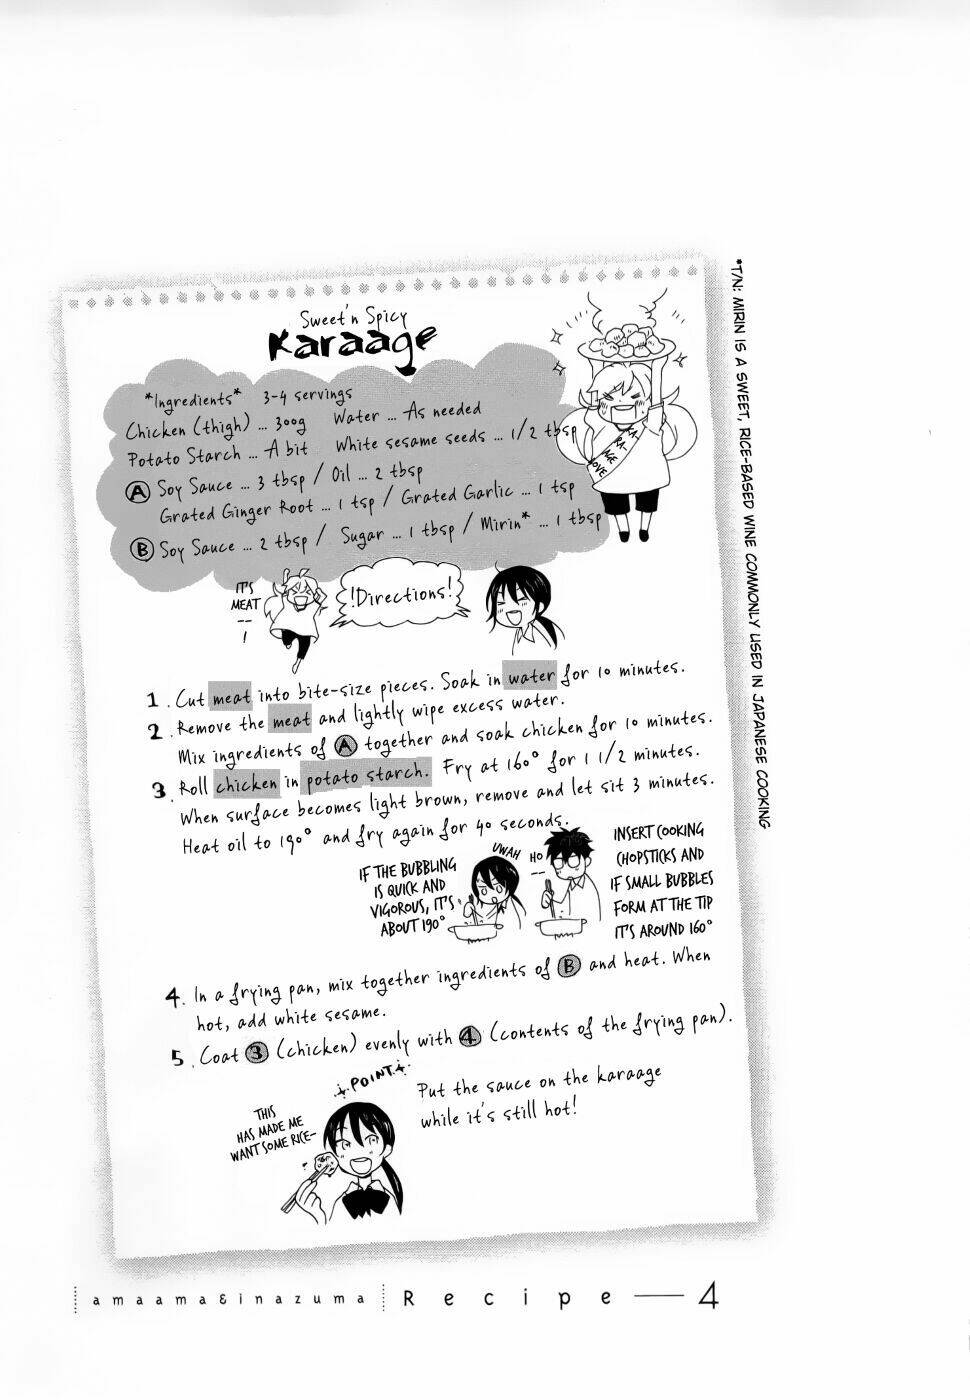 Sweet'n Spicy
Karaage
*Ingredients* 3-4 servings
Chicken (thigh) ... 300g Water ... As needed
Potato Starch ... A bit White sesame seeds ... 1/2 tbsp
A Soy Sauce ... 3 tbsp / Oil ... 2 tbsp
Grated Ginger Root ... 1 tsp / Grated Garlic ... 1 tsp
B Soy Sauce ... 2 tbsp / Sugar ... 1 tbsp / Mirin* ... 1 tbsp
KA-
RA-
AGE
LOVE
IT'S
MEAT
--
!
!Directions!
1. Cut meat into bite-size pieces. Soak in water for 10 minutes.
2. Remove the meat and lightly wipe excess water.
Mix ingredients of A together and soak chicken for 10 minutes.
3. Roll chicken in potato starch. Fry at 160° for 1 1/2 minutes.
When surface becomes light brown, remove and let sit 3 minutes.
Heat oil to 190° and fry again for 40 seconds.
IF THE BUBBLING
IS QUICK AND
VIGOROUS, IT'S
ABOUT 190°
UWAH
HO
--
INSERT COOKING
CHOPSTICKS AND
IF SMALL BUBBLES
FORM AT THE TIP
IT'S AROUND 160°
4. In a frying pan, mix together ingredients of B and heat. When
hot, add white sesame.
5. Coat 3 (chicken) evenly with 4 (contents of the frying pan).
POINT
Put the sauce on the karaage
while it's still hot!
THIS
HAS MADE ME
WANT SOME RICE~
*T/N: MIRIN IS A SWEET, RICE-BASED WINE COMMONLY USED IN JAPANESE COOKING
amaama&inazuma Recipe — 4